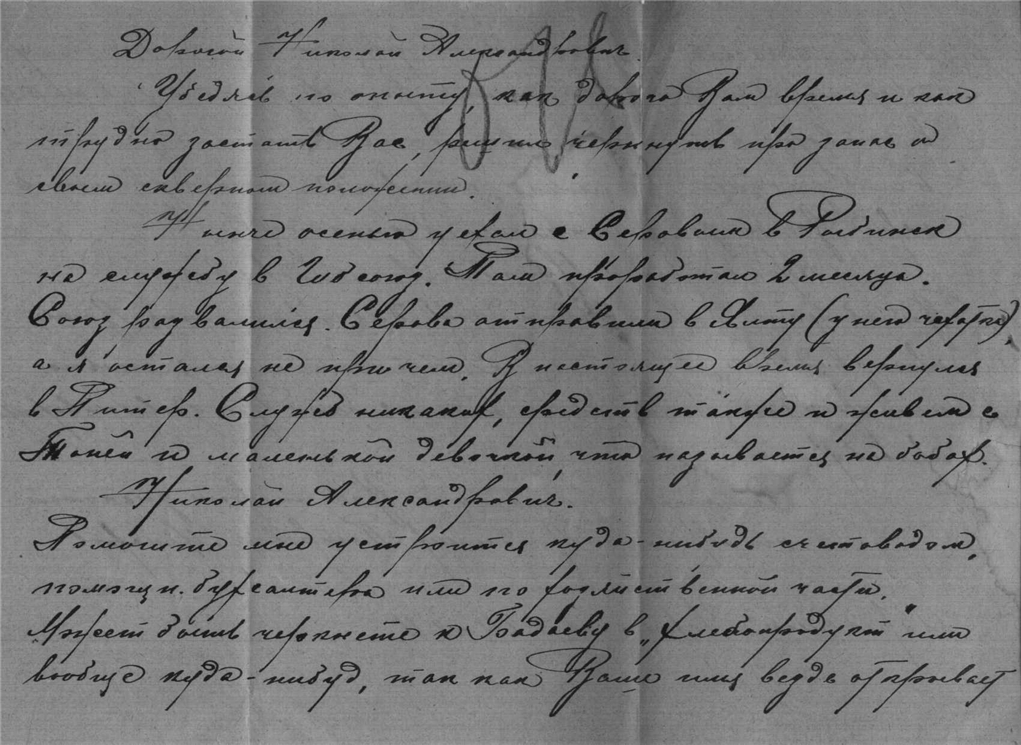 Дорогой Николай Александрович
Убедясь по опыту, как дорого Вам время и как
трудно застать Вас, решил черкнуть про запас о
своем скверном положении.
Нынче осенью уехал с Серовым в Рыбинск
на службу в Губсоюз. Там проработал 2 месяца.
Союз развалился. Серова отправили в Ялту (у него чехотка),
а я остался не причем. В настоящее время вернулся
в Питер. Служб никаких, средств также и живем с
Тоней и маленькой девочкой, что называется на бобах.
Николай Александрович.
Помогите мне устроится куда-нибудь счетоводом,
помощн. бухгалтера или по хозяйственной части.
Может быть черкнете к Бадаеву в „Хлебопродукт" или
вообще куда-нибуд, так как Ваше имя везде открывает